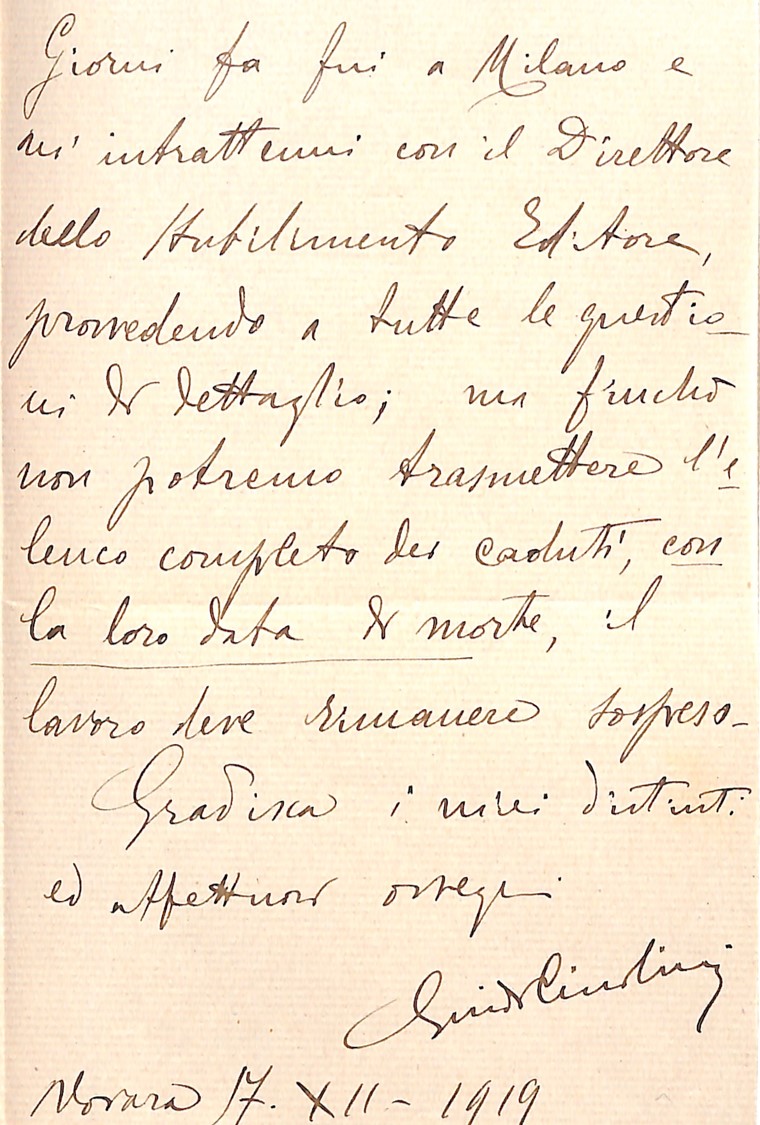 Giorni fa fui a Milano e
m'intrattenni con il Direttore
dello Stabilimento Editore,
provvedendo a tutte le questio-
ni di dettaglio; ma finchè
non potremo trasmettere l'e-
lenco completo dei caduti, con
la loro data di morte, il
lavoro deve rimanere sospeso-
Gradisca i miei distinti
ed affettuosi ossequi
Novara 17. XII - 1919